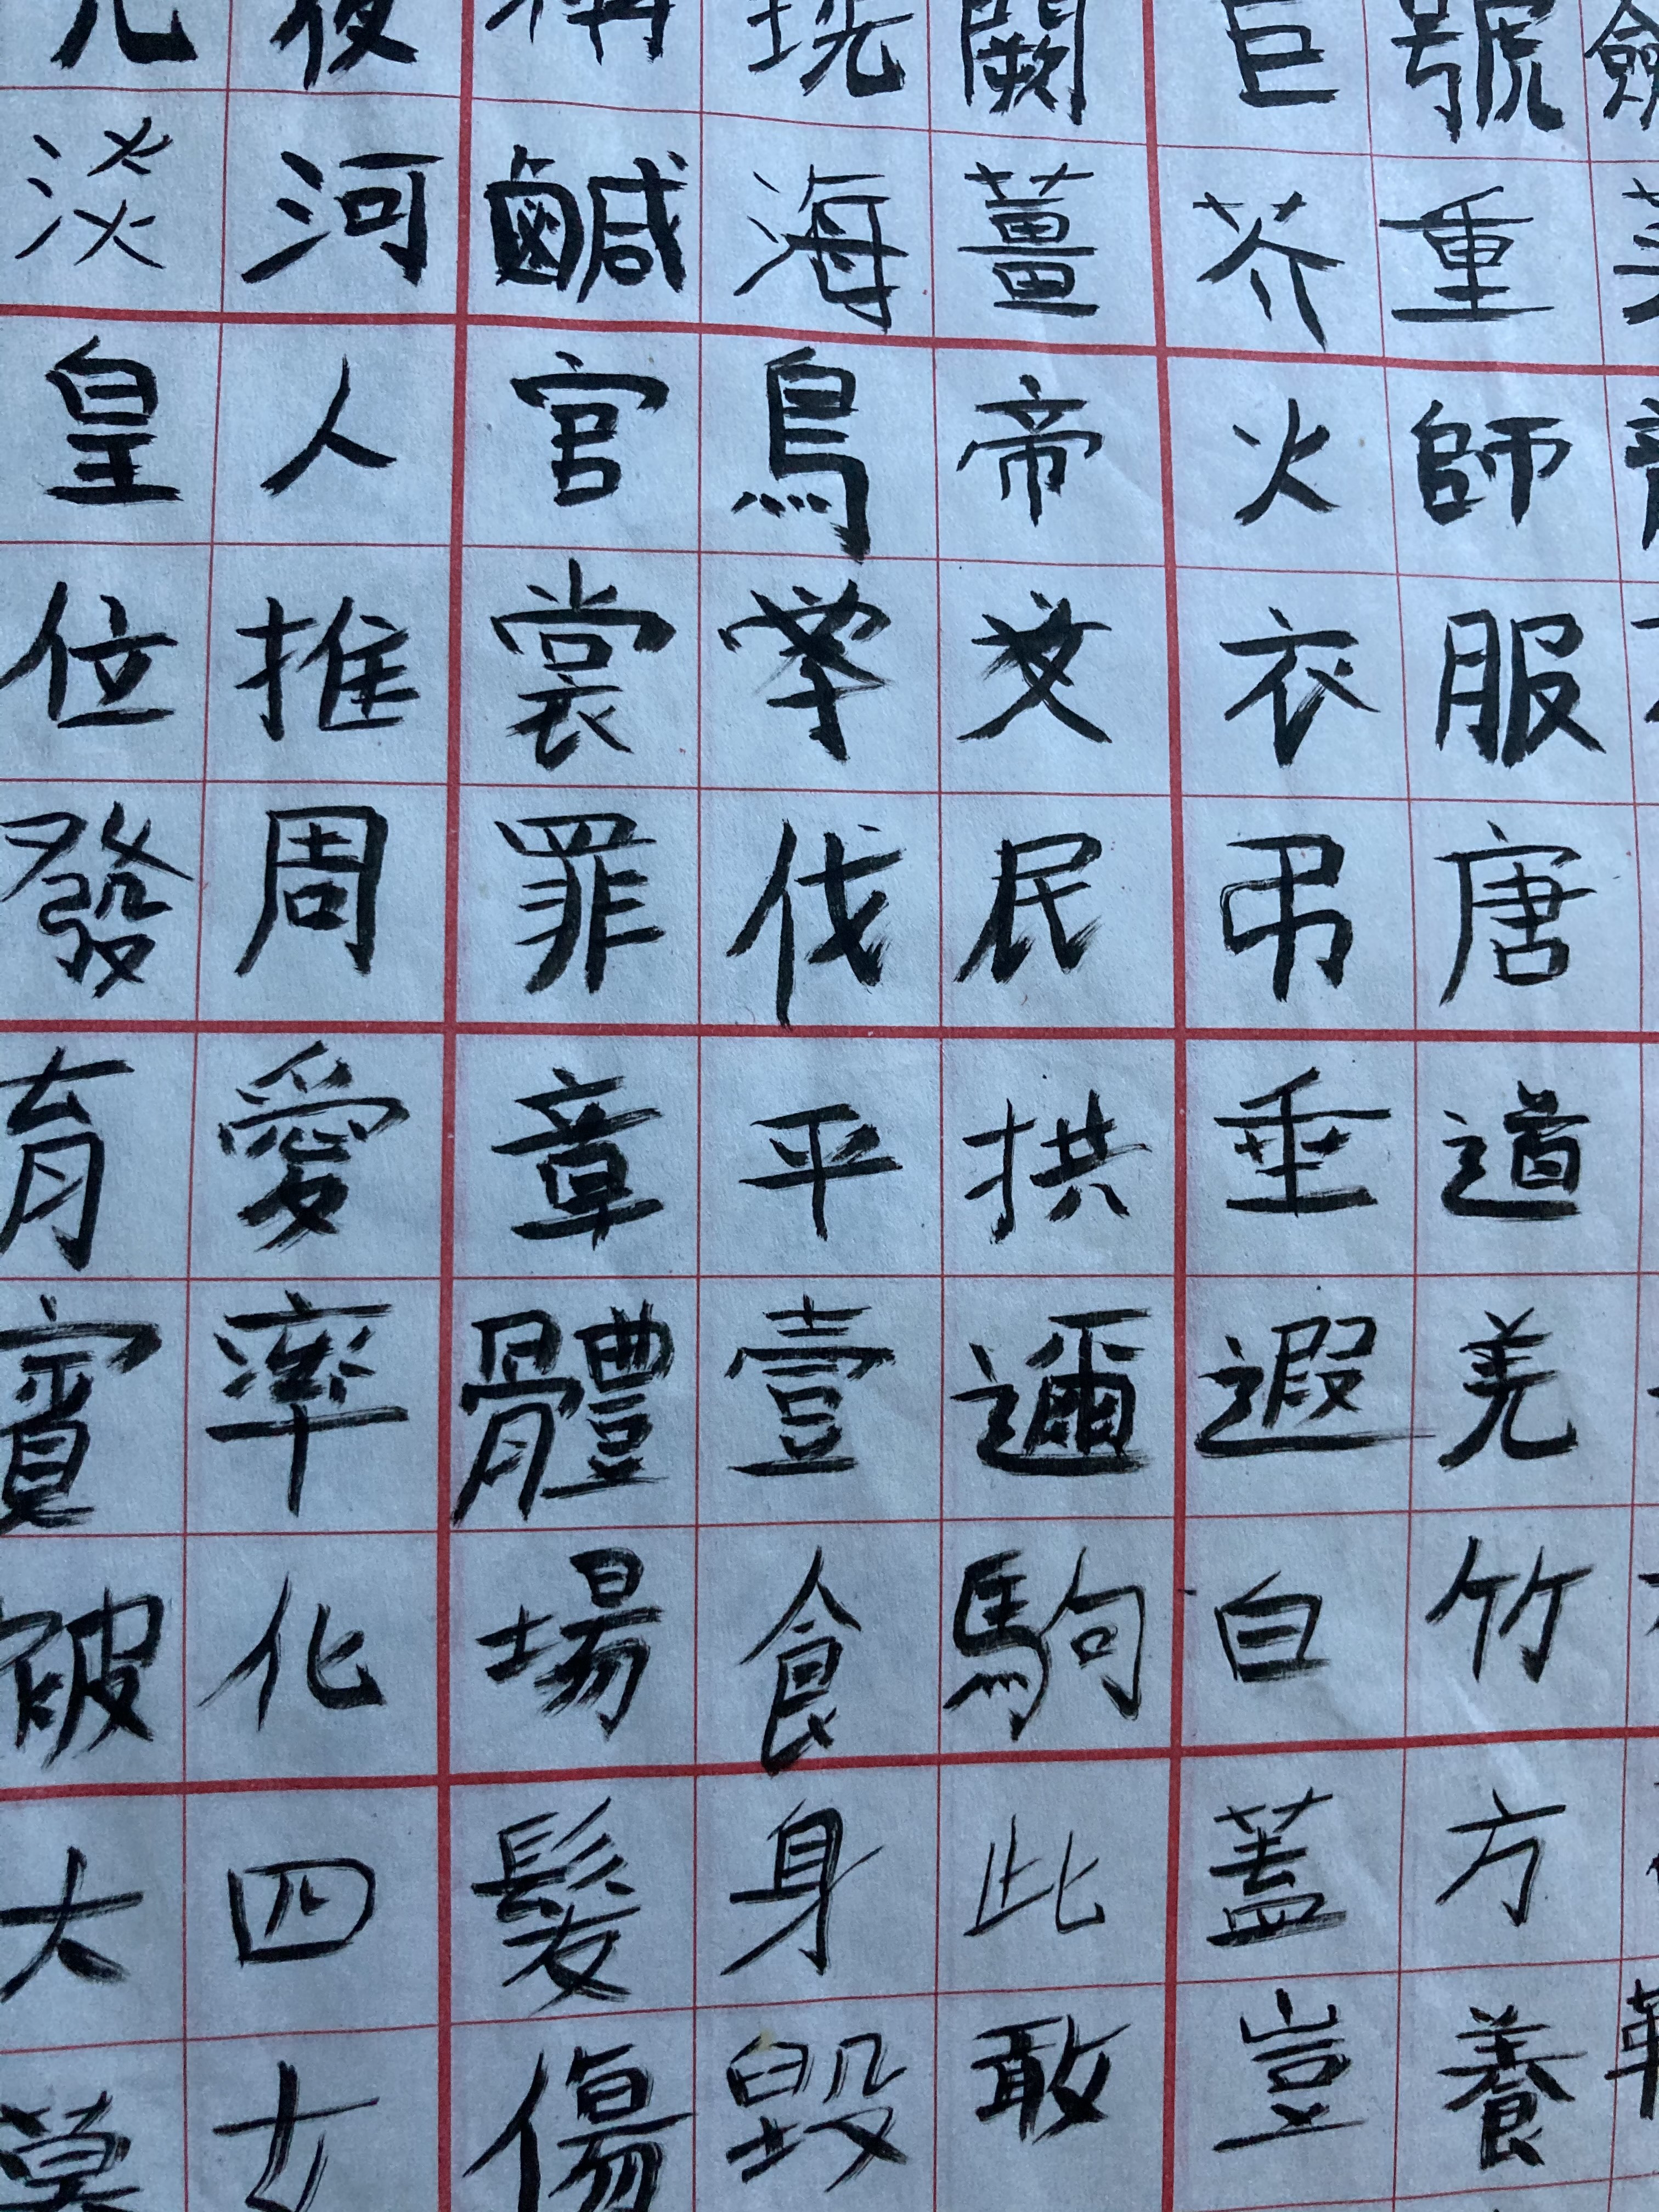 號巨闕珖稱夜光
菜重芥薑海鹹河淡
師火帝鳥官人皇
服衣裳推位
唐弔民伐罪周發
道垂拱平章愛育
羌遐邇壹體率賓
竹白駒食場化被
方蓋此身髮四大
養豈敢毀傷女